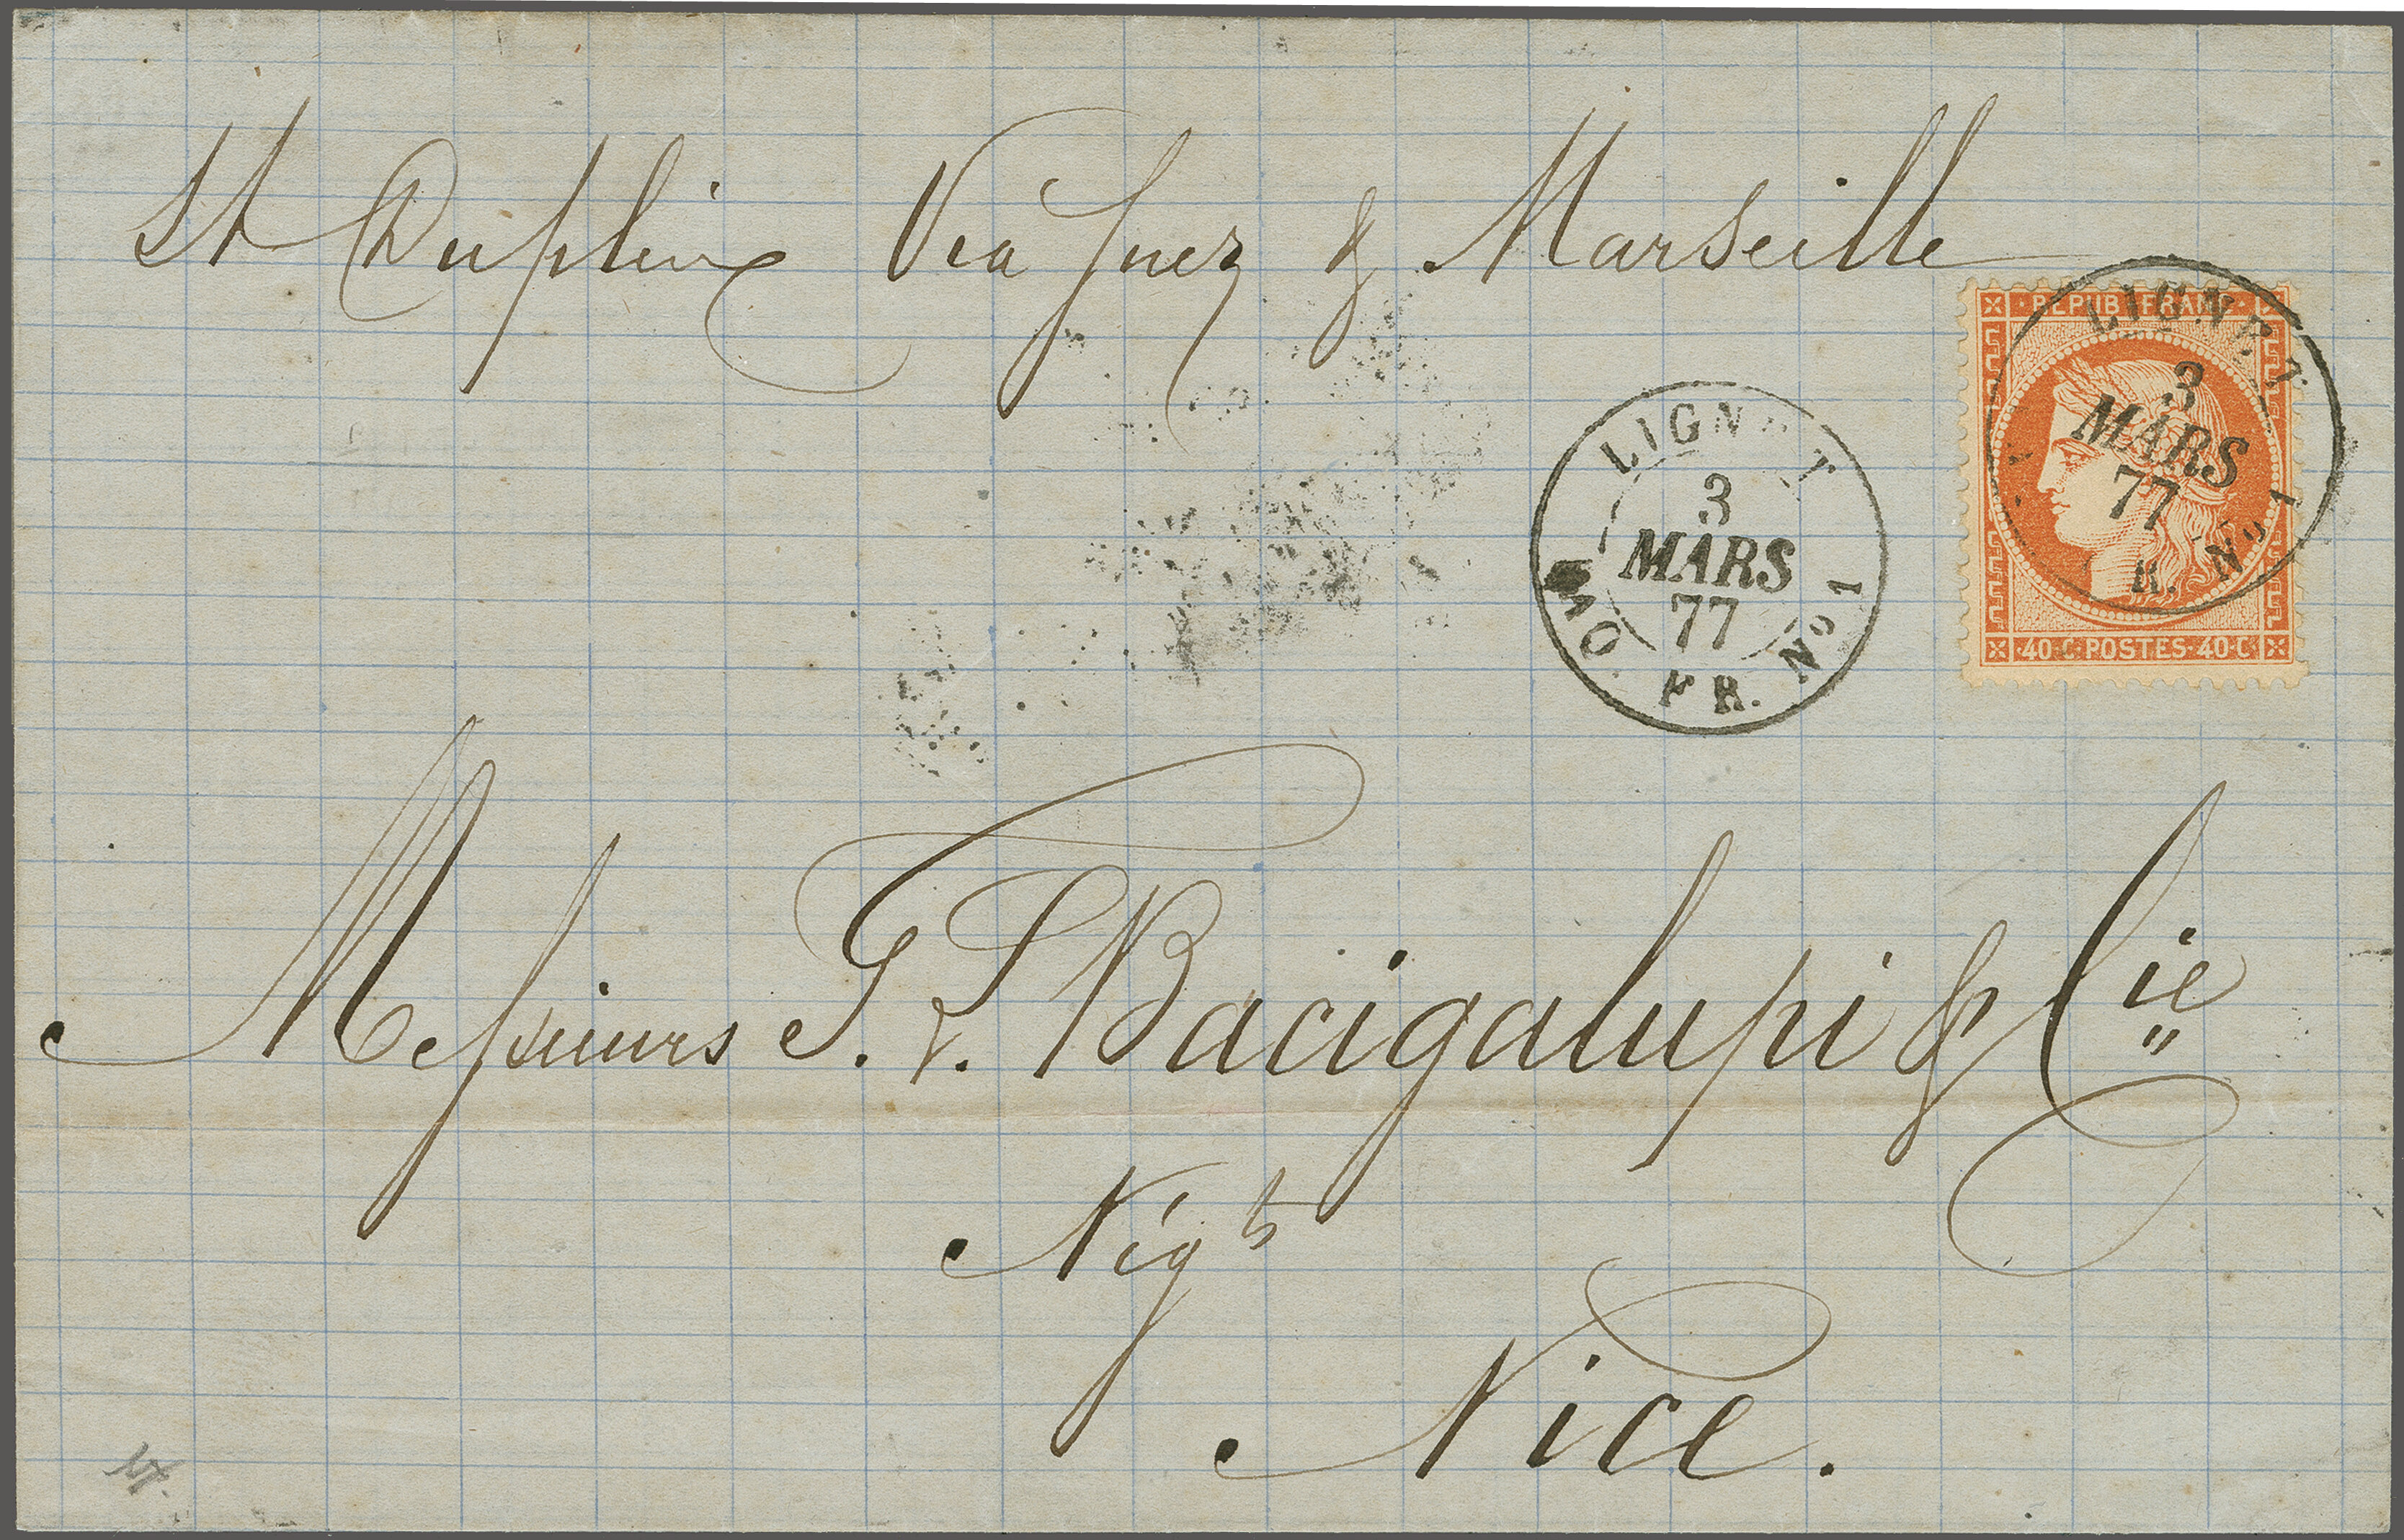 St Dupleix Via Suez & Marseille
REPUB FRANC
LIGNE T
3
MARS
77
R. No 1
40 C POSTES 40 C
LIGNE T
3
MARS
77
FR. No 1
Messieurs G. V. Bacigalupi & Cie
Négts
Nice.